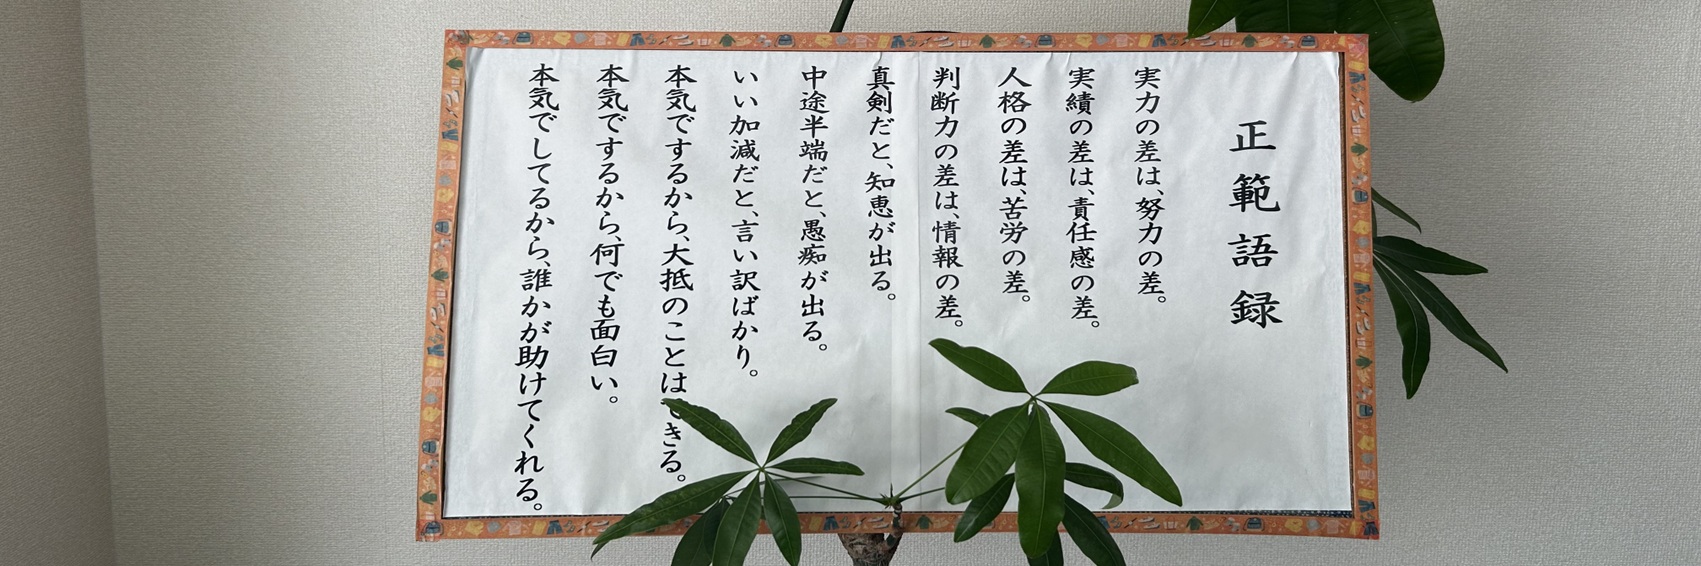 正範語録
実力の差は、努力の差。
実績の差は、責任感の差。
人格の差は、苦労の差。
判断力の差は、情報の差。
真剣だと、知恵が出る。
中途半端だと、愚痴が出る。
いい加減だと、言い訳ばかり。
本気でするから、大抵のことはできる。
本気でするから、何でも面白い。
本気でしてるから、誰かが助けてくれる。